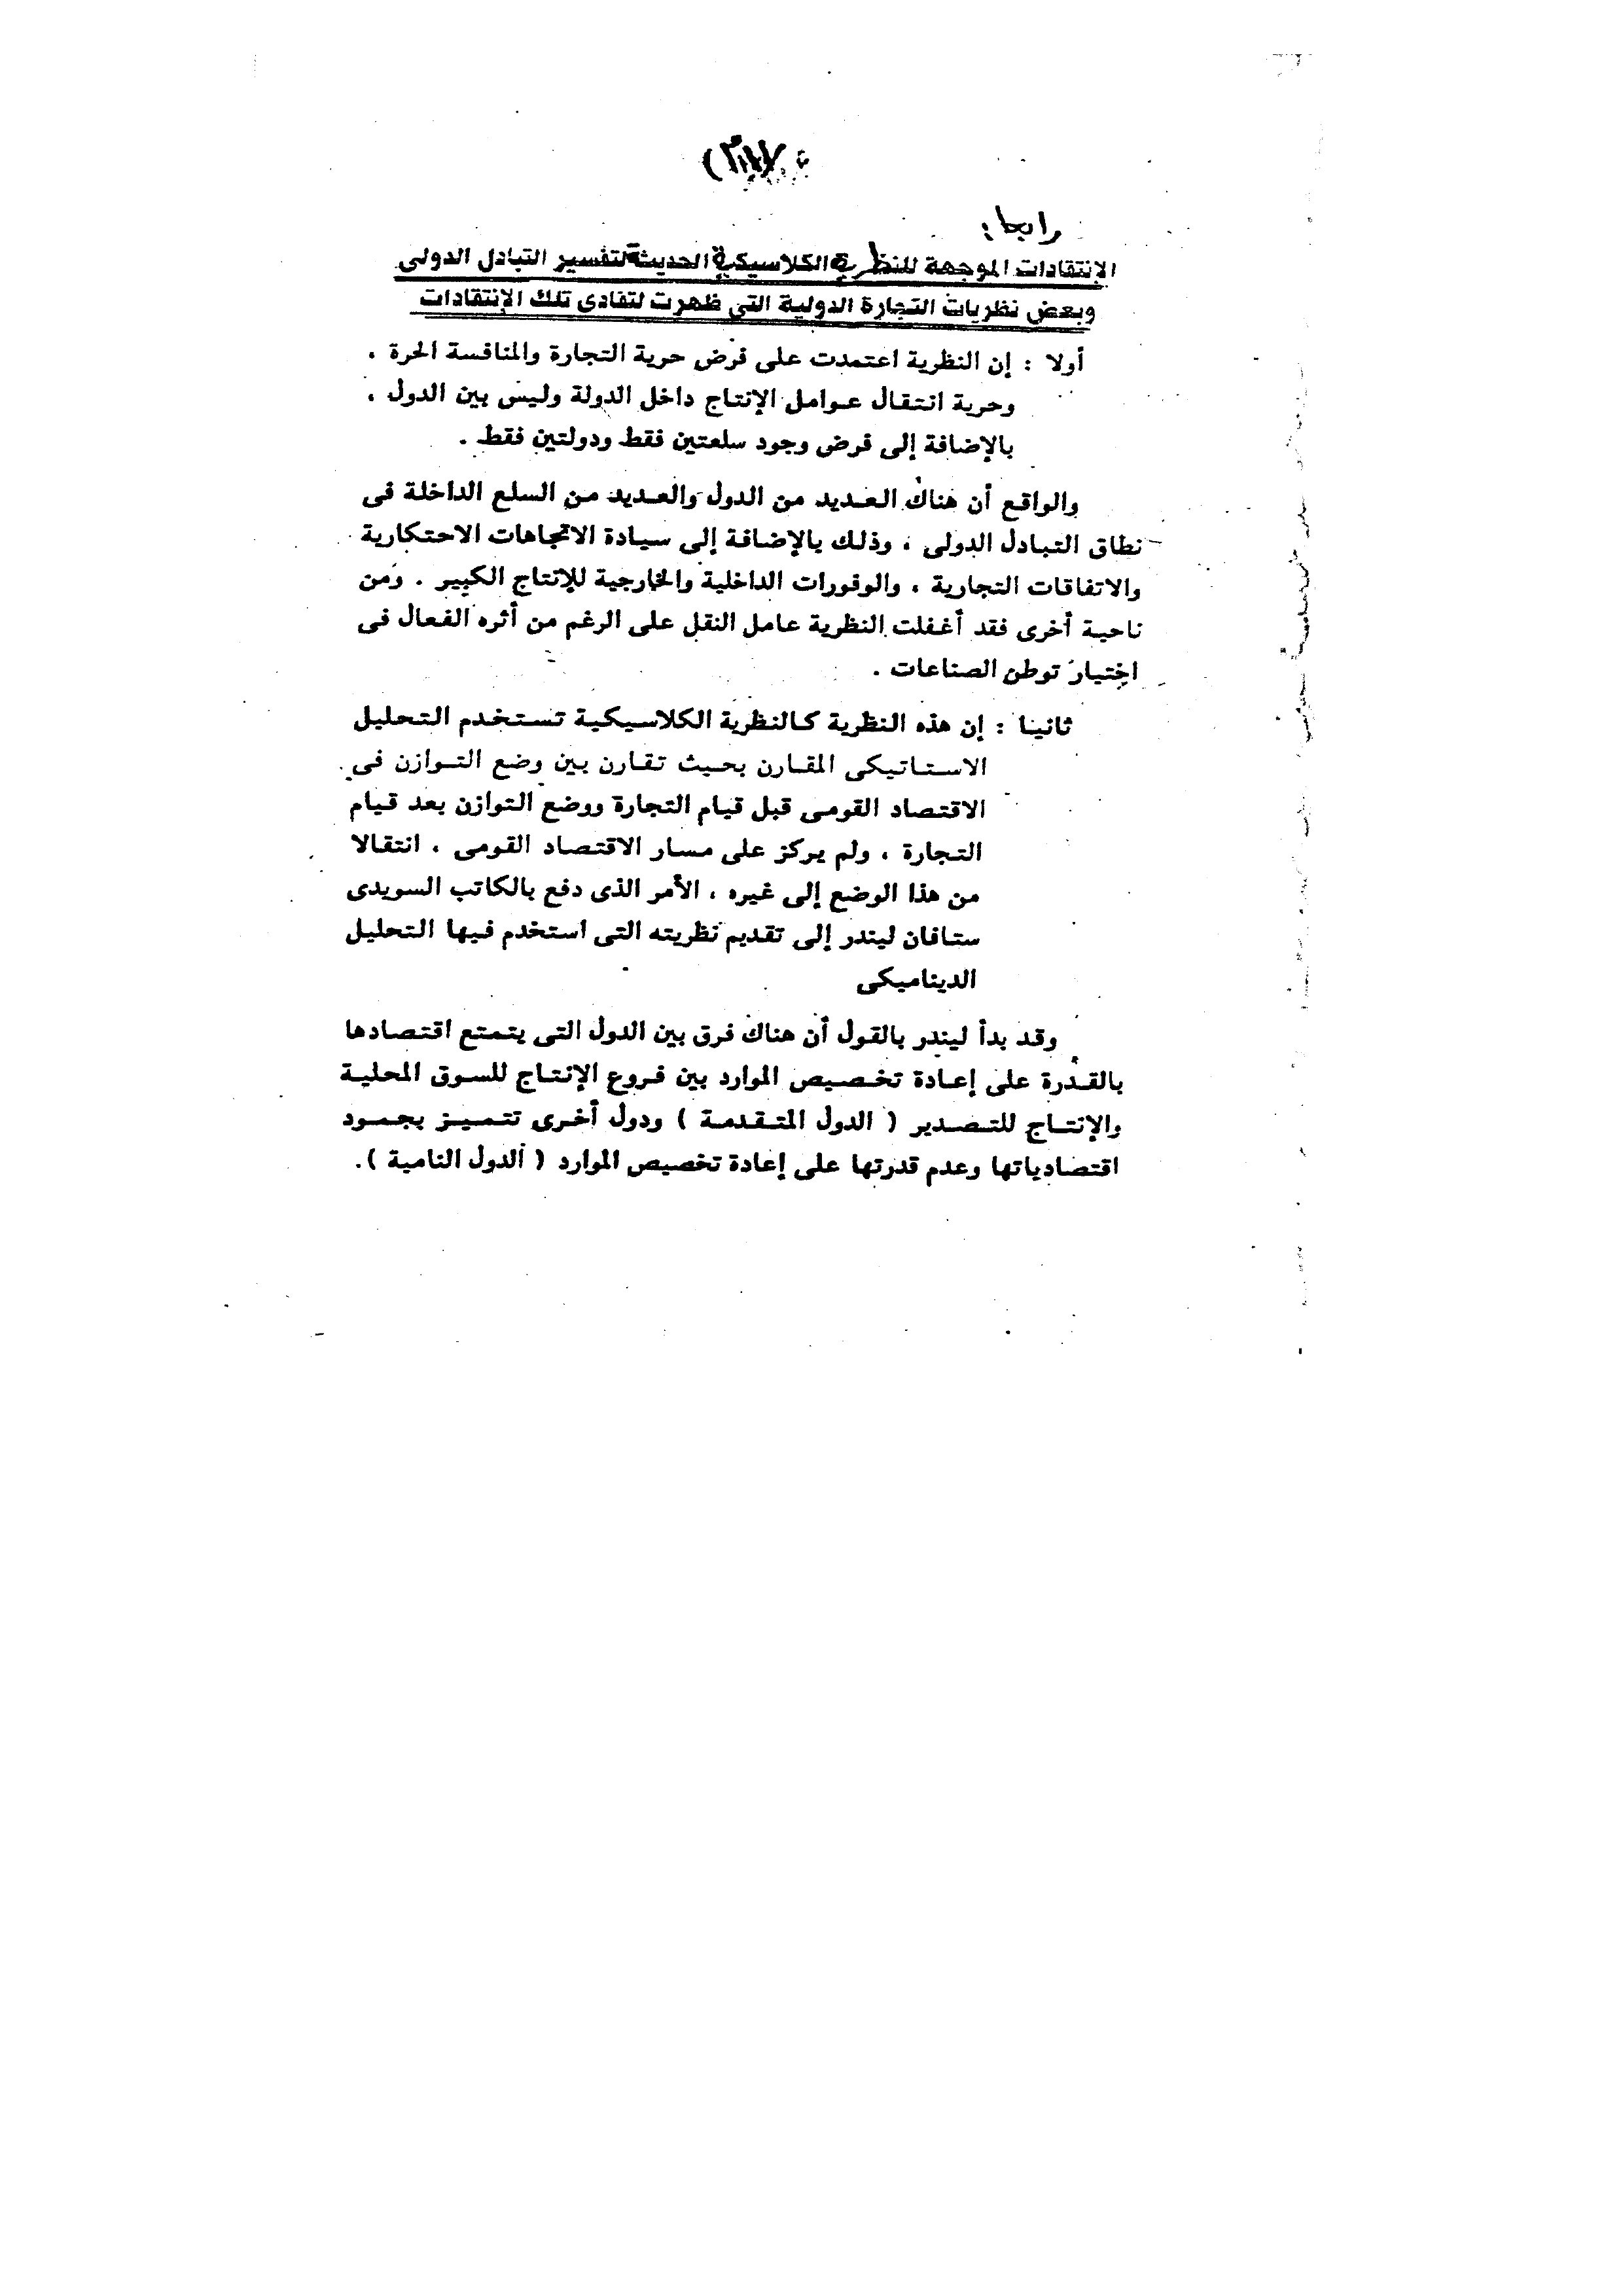 رابعا:
الإنتقادات الموجهة للنظرية الكلاسيكية الحديثة لتفسير التبادل الدولى
وبعض نظريات التجارة الدولية التى ظهرت لتفادى تلك الإنتقادات
أولا : إن النظرية اعتمدت على فرض حرية التجارة والمنافسة الحرة ،
وحرية انتقال عوامل الإنتاج داخل الدولة وليس بين الدول ،
بالإضافة إلى فرض وجود سلعتين فقط ودولتين فقط .
والواقع أن هناك العديد من الدول والعديد من السلع الداخلة فى
نطاق التبادل الدولى ، وذلك بالإضافة إلى سيادة الاتجاهات الاحتكارية
والاتفاقات التجارية ، والوفورات الداخلية والخارجية للإنتاج الكبير . ومن
ناحية أخرى فقد أغفلت النظرية عامل النقل على الرغم من أثره الفعال فى
اختيار توطن الصناعات .
ثانيا : إن هذه النظرية كالنظرية الكلاسيكية تستخدم التحليل
الاستاتيكى المقارن بحيث تقارن بين وضع التوازن فى
الاقتصاد القومى قبل قيام التجارة ووضع التوازن بعد قيام
التجارة ، ولم يركز على مسار الاقتصاد القومى ، انتقالا
من هذا الوضع إلى غيره ، الأمر الذى دفع بالكاتب السويدى
ستافان ليندر إلى تقديم نظريته التى استخدم فيها التحليل
الديناميكى
وقد بدأ ليندر بالقول أن هناك فرق بين الدول التى يتمتع اقتصادها
بالقدرة على إعادة تخصيص الموارد بين فروع الإنتاج للسوق المحلية
والإنتاج للتصدير ( الدول المتقدمة ) ودول أخرى تتميز بجمود
اقتصادياتها وعدم قدرتها على إعادة تخصيص الموارد ( الدول النامية ).